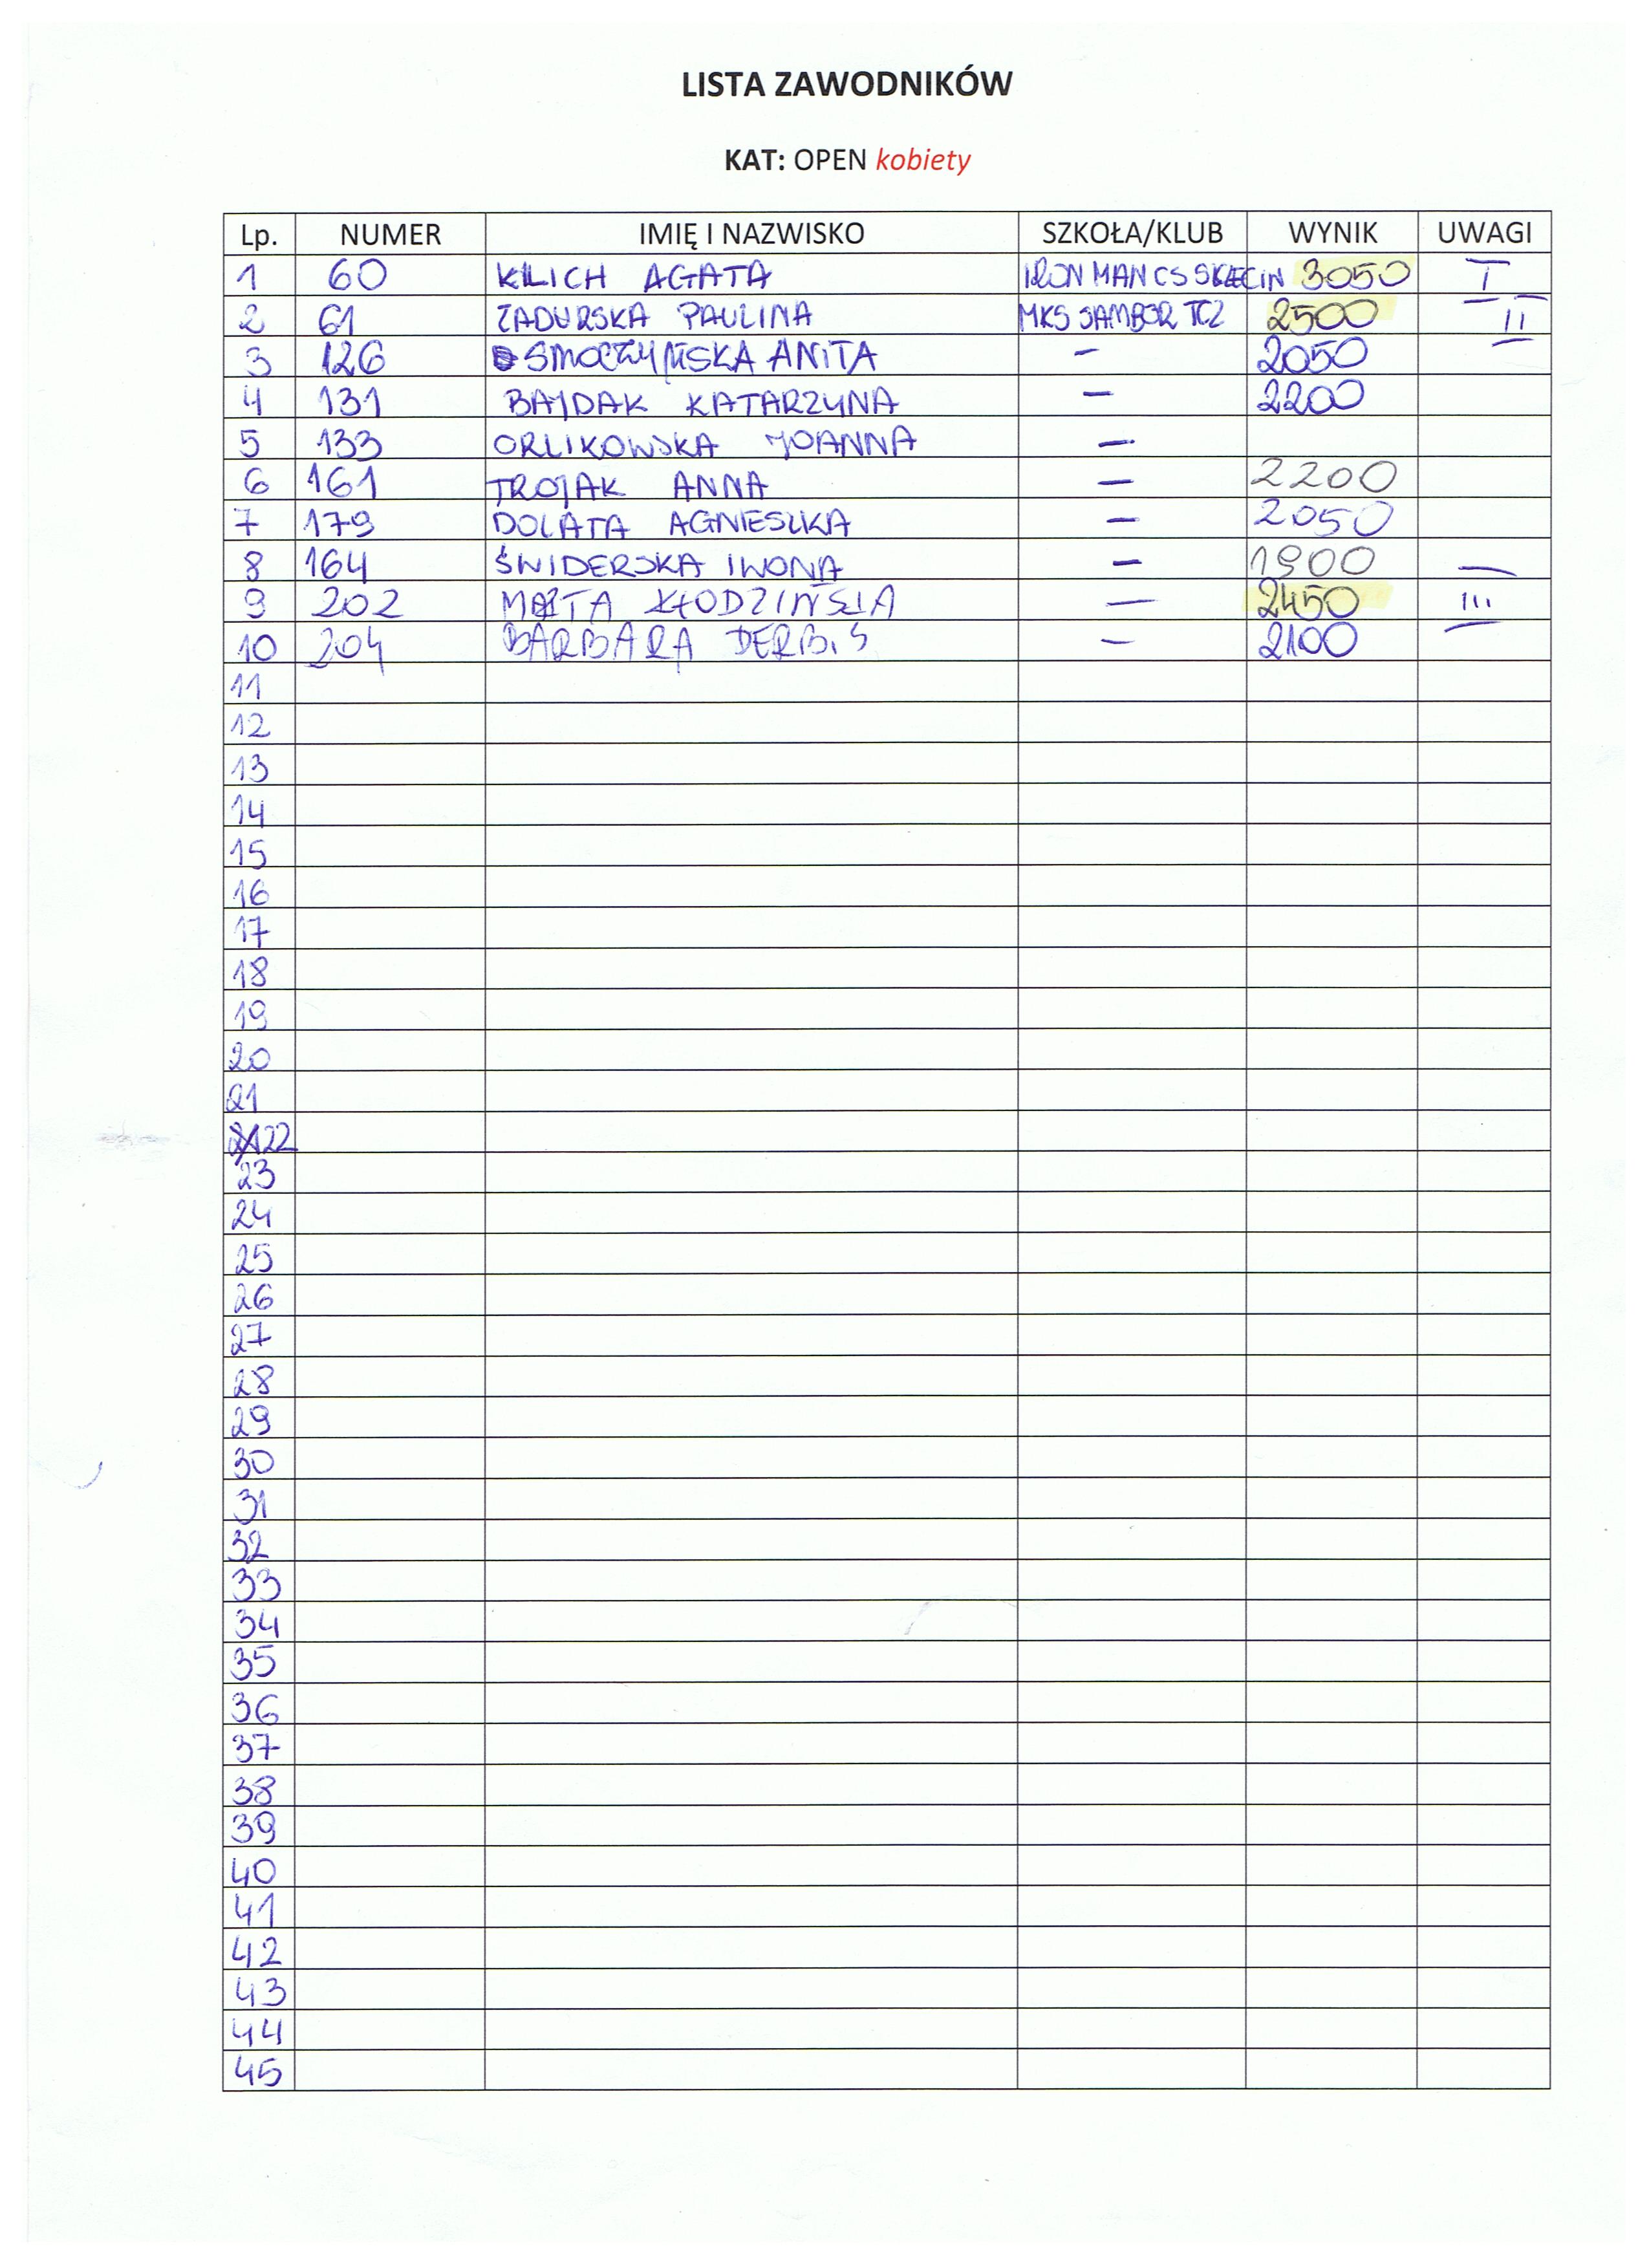 LISTA ZAWODNIKÓW
KAT: OPEN kobiety
Lp. NUMER IMIĘ I NAZWISKO SZKOŁA/KLUB WYNIK UWAGI
1 60 KLICH AGATA IRON MAN CS SKĘCIN 3050 I
2 61 ZADURSKA PAULINA MKS SAMBOR TCZ 2500 II
3 126 SMOCZYŃSKA ANITA - 2050
4 131 BAJDAK KATARZYNA - 2200
5 133 ORLIKOWSKA JOANNA -
6 161 TROJAK ANNA - 2200
7 179 DOLATA AGNIESZKA - 2050
8 164 ŚWIDERSKA IWONA - 1900
9 202 MARTA KŁODZIŃSKA - 2450 III
10 204 BARBARA DERBIS - 2100
11
12
13
14
15
16
17
18
19
20
21
22
23
24
25
26
27
28
29
30
31
32
33
34
35
36
37
38
39
40
41
42
43
44
45